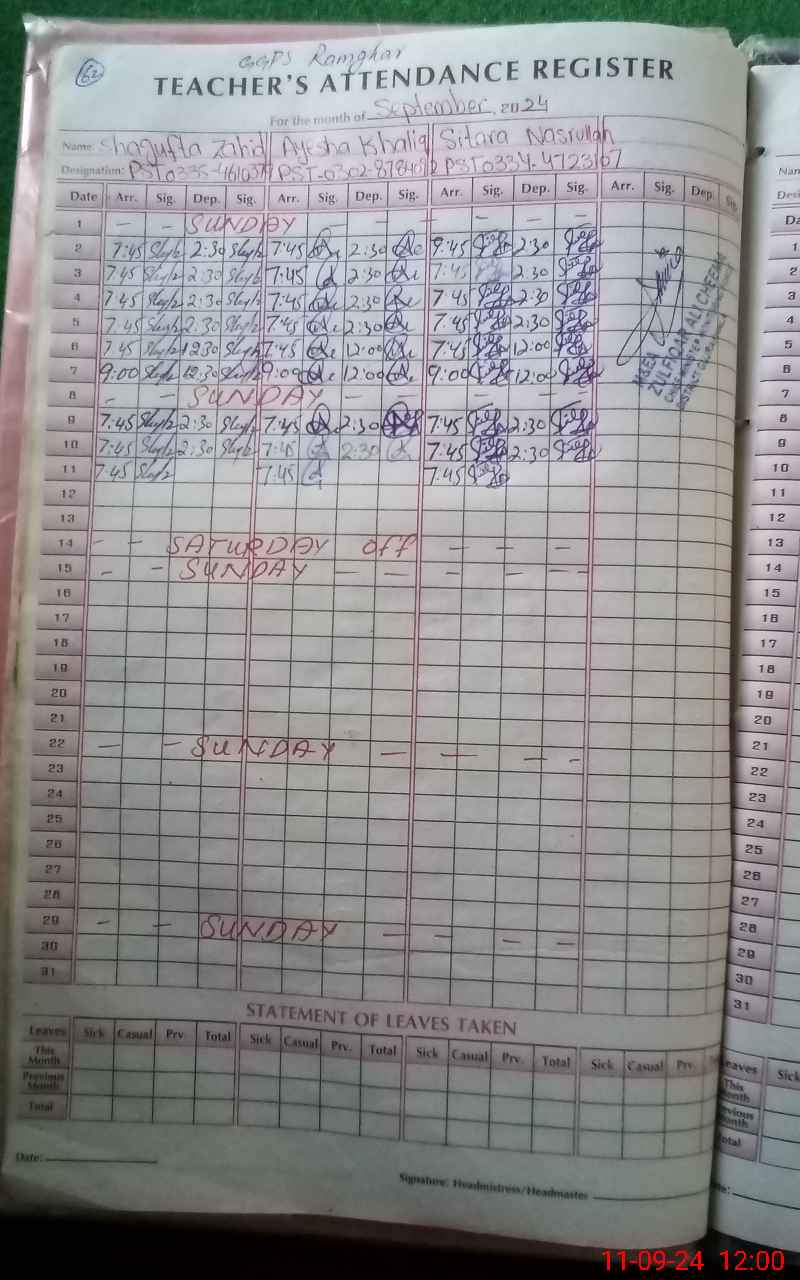 62
GGPS Ramghar
TEACHER'S ATTENDANCE REGISTER
For the month of September, 2024
Name: Shagufta Zahid Ayesha Khaliq Sitara Nasrullah
Designation: PST 0302- PST 0334-4723167
Date Arr. Sig. Dep. Sig. Arr. Sig. Dep. Sig. Arr. Sig. Dep. Sig. Arr. Sig. Dep. Sig.
1 - - SUNDAY - - - - - -
2 7:45 2:30 7:45 2:30 7:45 2:30
3 7:45 2:30 7:45 2:30 7:45 2:30
4 7:45 2:30 7:45 2:30 7:45 2:30
5 7:45 2:30 7:45 2:30 7:45 2:30
6 7:45 12:30 7:45 12:00 7:45 12:00
7 9:00 12:30 9:00 12:00 9:00 12:00
8 - - SUNDAY - - - - - -
9 7:45 2:30 7:45 2:30 7:45 2:30
10 7:45 2:30 7:45 2:30 7:45 2:30
11 7:45 7:45 7:45
12
13
14 - - SATURDAY off - - -
15 - - SUNDAY - - - - - -
16
17
18
19
20
21
22 - - SUNDAY - - - -
23
24
25
26
27
28
29 - - SUNDAY - - - -
30
31
ZULFIQAR ALI CHEEMA
STATEMENT OF LEAVES TAKEN
Leaves Sick Casual Prv. Total Sick Casual Prv. Total Sick Casual Prv. Total Sick Casual Prv.
This Month
Previous Month
Total
Date:
Signature: Headmistress/Headmaster
1
2
3
4
5
6
7
8
9
10
11
12
13
14
15
16
17
18
19
20
21
22
23
24
25
26
27
28
29
30
31
Sick
11-09-24 12:00